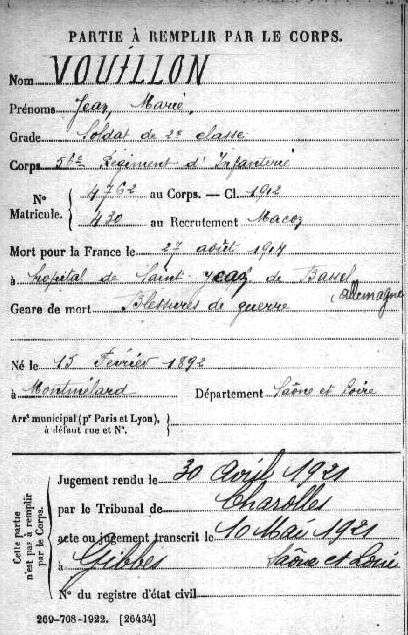 PARTIE À REMPLIR PAR LE CORPS.
Nom VOUILLON
Prénoms Jean, Marie,
Grade Soldat de 2e classe
Corps Régiment d'Infanterie
N° Matricule. { 4762 au Corps. — Cl. 1912
430 au Recrutement Macon
Mort pour la France le 27 août 1914
à hôpital de Saint-Jean de Bassel
(Allemagne
Genre de mort Blessures de guerre
Né le 15 Février 1892
à Montmélard Département Saône et Loire
Arrt municipal (pr Paris et Lyon), à défaut rue et N°. }
Cette partie n'est pas à remplir par le Corps.
Jugement rendu le 30 Avril 1921
par le Tribunal de Charolles
acte ou jugement transcrit le 10 Mai 1921
à Gibles Saône et Loire
N° du registre d'état civil
269-708-1922. [26434]